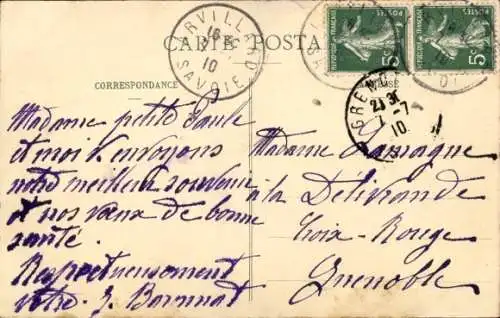 CARTE POSTALE
CORRESPONDANCE
ARVILLARD
16
7
10
SAVOIE
RÉPUBLIQUE FRANÇAISE
POSTES
5c
RÉPUBLIQUE FRANÇAISE
POSTES
5c
GRENOBLE
7-7
10
Madame petite Paule
et moi envoyons
notre meilleur souvenir
et nos vœux de bonne
santé.
Respectueusement
votre
Madame
à la Délivrande
Croix-Rouge
Grenoble